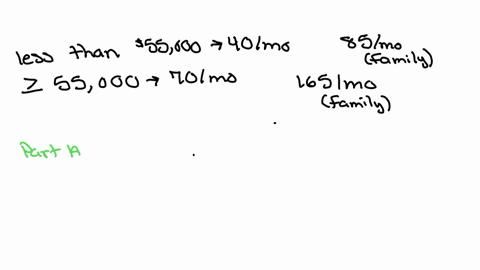 less than $55,000 → 40/mo 85/mo (family)
≥ 55,000 → 70/mo 165/mo (family)
Part A